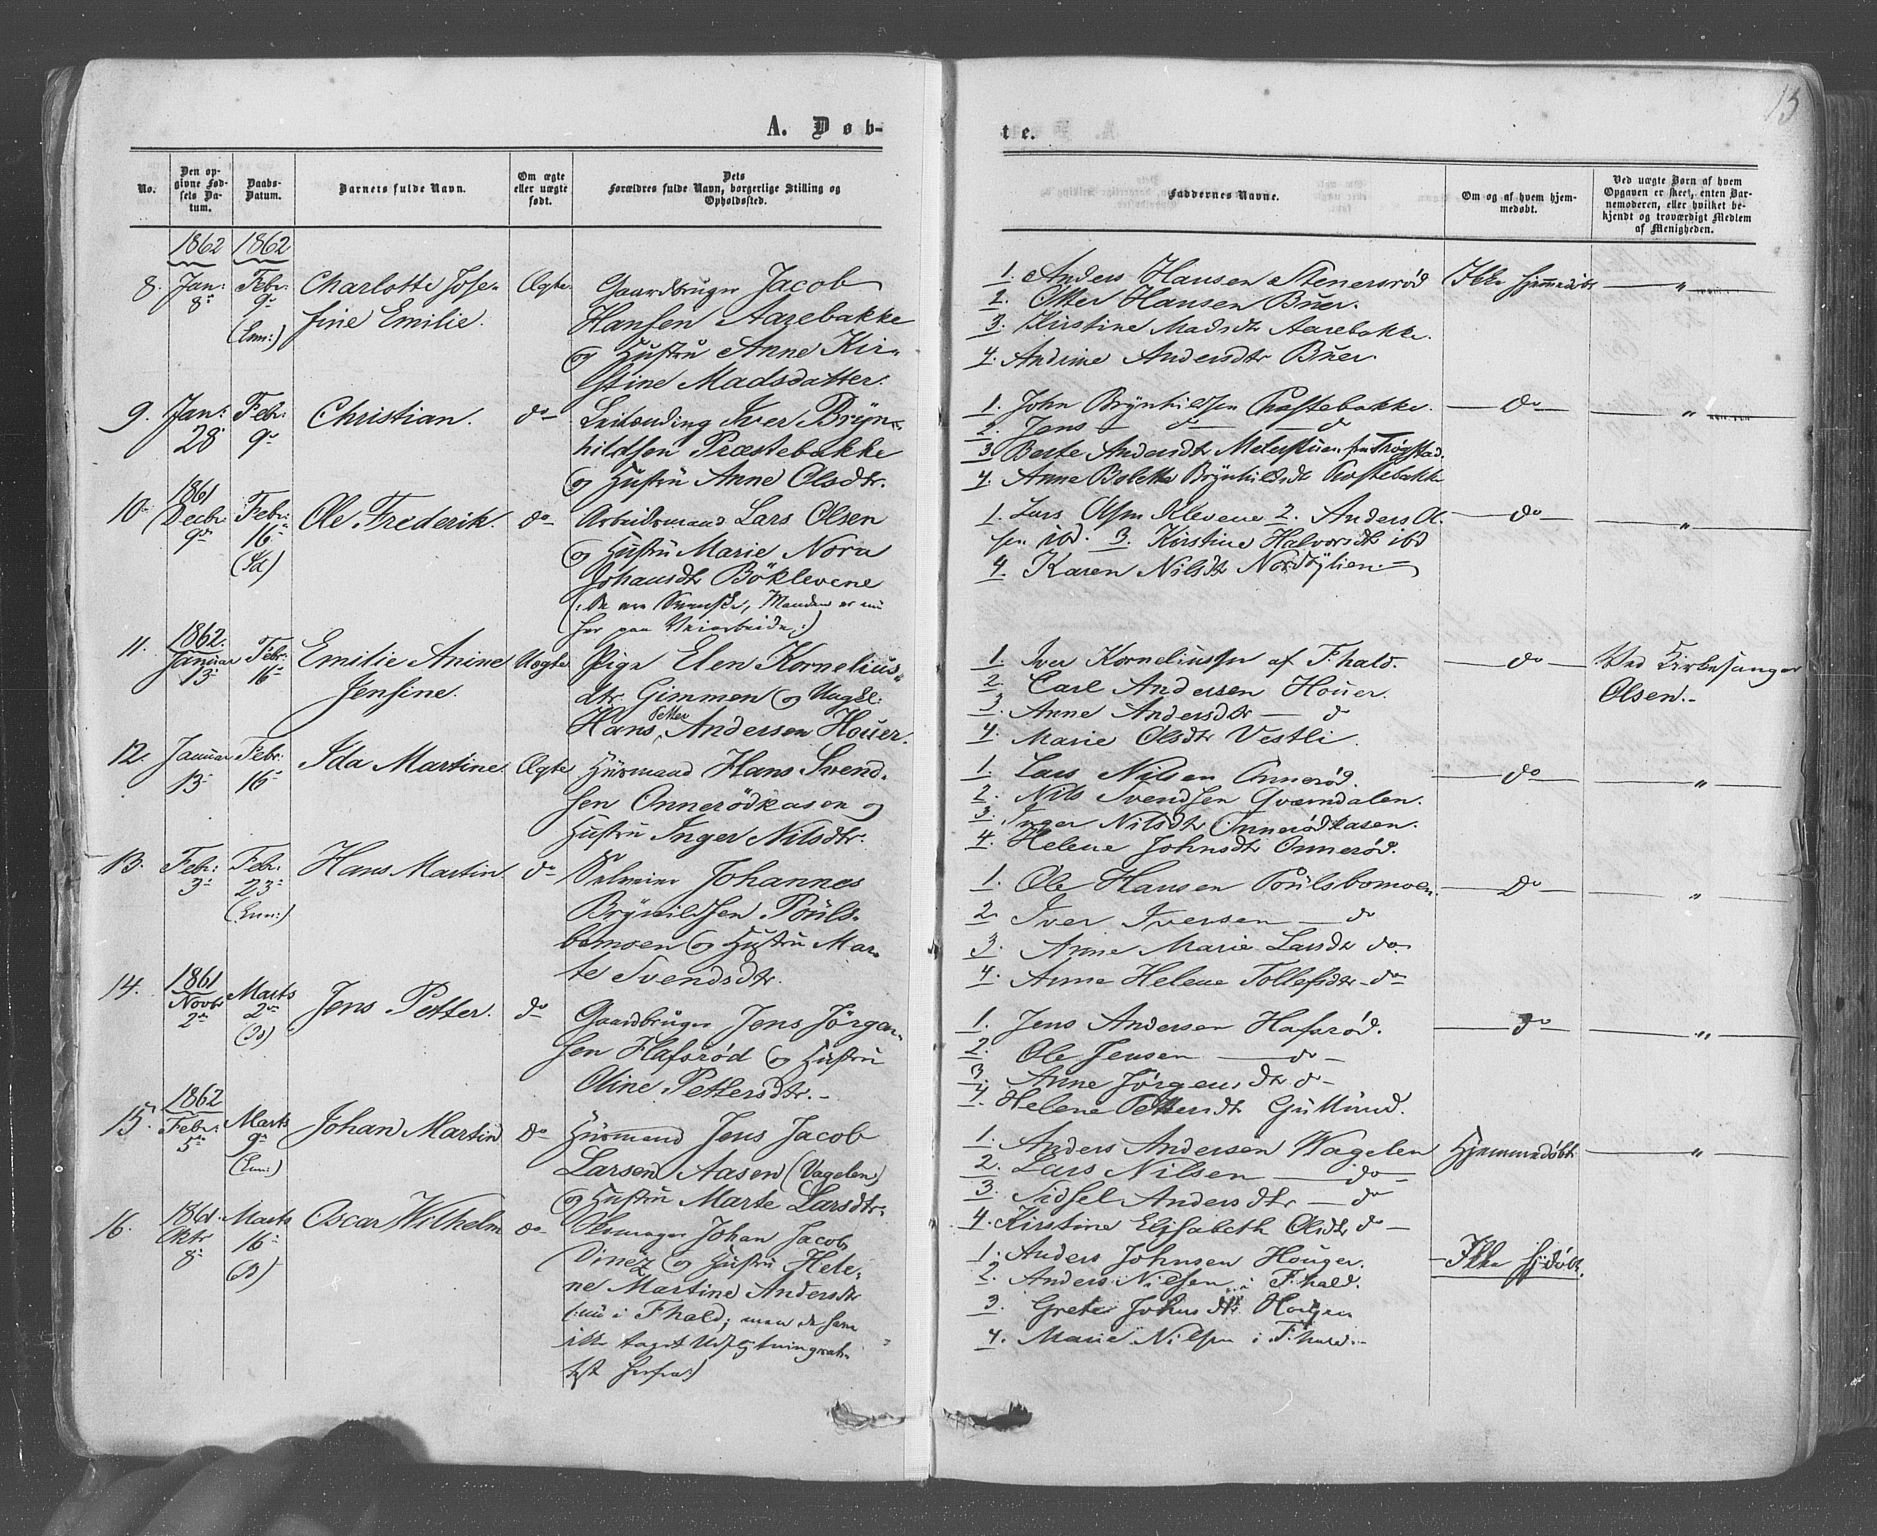 13
A. Døb-
te.
No.
Den op-
givne Fød-
sels Da-
tum.
Daabs-
Datum.
Barnets fulde Navn.
Om ægte
eller uægte
født.
Dets
Forældres fulde Navn, borgerlige Stilling og
Opholdssted.
Faddernes Navne.
Om og af hvem hjem-
medøbt.
Ved uægte Børn af hvem
Opgaven er skeet, enten Bar-
nemoderen, eller hvilket be-
kjendt og troværdigt Medlem
af Menigheden.
1862 1862
8. Jan: 8: Febr: 9: (Enn:)
Charlotte Jose-
fine Emilie.
Ægte
Gaardbruger Jacob
Hansen Aarebakke
og Hustru Anne Kir-
stine Madsdatter.
1. Anders Hansen Stenersrød
2. Otter Hansen Buer.
3. Kirstine Madsdtr Aarebakke.
4. Andrine Andersdtr Buer.
Ikke hjemmedøbt
"
9. Jan: 28: Febr: 9:
Christian.
do
Leilending Iver Bryn-
hildsen Præstebakke
og Hustru Anne Olsdtr.
1. John Brynhildsen Præstebakke.
2. Jens do do
3. Berte Andersdtr fra Trøgstad.
4. Anne Bolette Brynhildsdtr Præstebakke
do
"
10. 1861 Decbr 9de Febr: 16 (Id)
Ole Frederik.
do
Arbeidsmand Lars Olsen
og Hustru Marie Nora
Johansdtr Böklevene
(: De ere Svenske, Manden er nu
her paa Veiarbeide:)
1. Lars Olsen Klevene 2. Anders Ol-
sen ibd. 3. Kirstine Halvorsdtr ibd
4. Karen Nilsdtr
do
"
11. 1862. Januar 13 Febr: 16
Emilie Anine
Jensine.
Uægte
Pige Elen Kornelius-
dtr. Gimmen og Ungkl:
Hans Petter Andersen Houer.
1. Iver Korneliussen af F.hald.
2. Carl Andersen Houer.
3. Anne Andersdtr do
4. Marie Olsdtr Vestli.
do
Ved Kirkesanger
Olsen.
12. Januar 13 Febr: 16
Ida Martine
Ægte
Husmand Hans Svend-
sen Onnerødkasen og
Hustru Inger Nilsdtr.
1. Lars Nilsen Onnerød.
2. Nils Svendsen Qværndalen.
3. Inger Nilsdtr Onnerødkasen.
4. Helene Johnsdtr Onnerød.
do
"
13. Febr: 3: Febr: 23: (Enn:)
Hans Martin
do
Selveier Johannes
Brynildsen Pouls-
bomoen og Hustru Mar-
te Svendsdtr.
1. Ole Hansen Poulsbomoen.
2. Iver Iversen do
3. Anne Marie Larsdtr do
4. Anne Helene Tollefsdtr do
do
"
14. 1861 Novbr 2den Marts 2den (Id)
Jens Petter.
do
Gaardbruger Jens Jørgen-
sen Hafsrød og Hustru
Oline Pettersdtr.
1. Jens Andersen Hafsrød.
2. Ole Jensen do
3. Anne Jørgensdtr do
4. Helene Pettersdtr Gullund.
do
"
15. 1862 Febr: 5te Marts 9de (Enn:)
Johan Martin
do
Husmand Jens Jacob
Larsen Aasen (Vagelen)
og Hustru Marte Larsdtr.
1. Anders Andersen Wagelen
2. Lars Nilsen do
3. Sidsel Andersdtr do
4. Kirstine Elisabeth Olsdtr do
Hjemmedøbt
"
16. 1861. Oktr 8: Marts 16
Oscar Wilhelm
do
Skomager Johan Jacob
Dinez og Hustru Hele-
ne Martine Andersdtr
(: nu i F.hald; men de have
ikke taget Udflytningsat-
test herfra:)
1. Anders Johnsen Houger.
2. Anders Nilsen i F.hald.
3. Grete Johnsdtr Hougen
4. Marie Nilsen i F.hald.
Ikke hjdøbt.